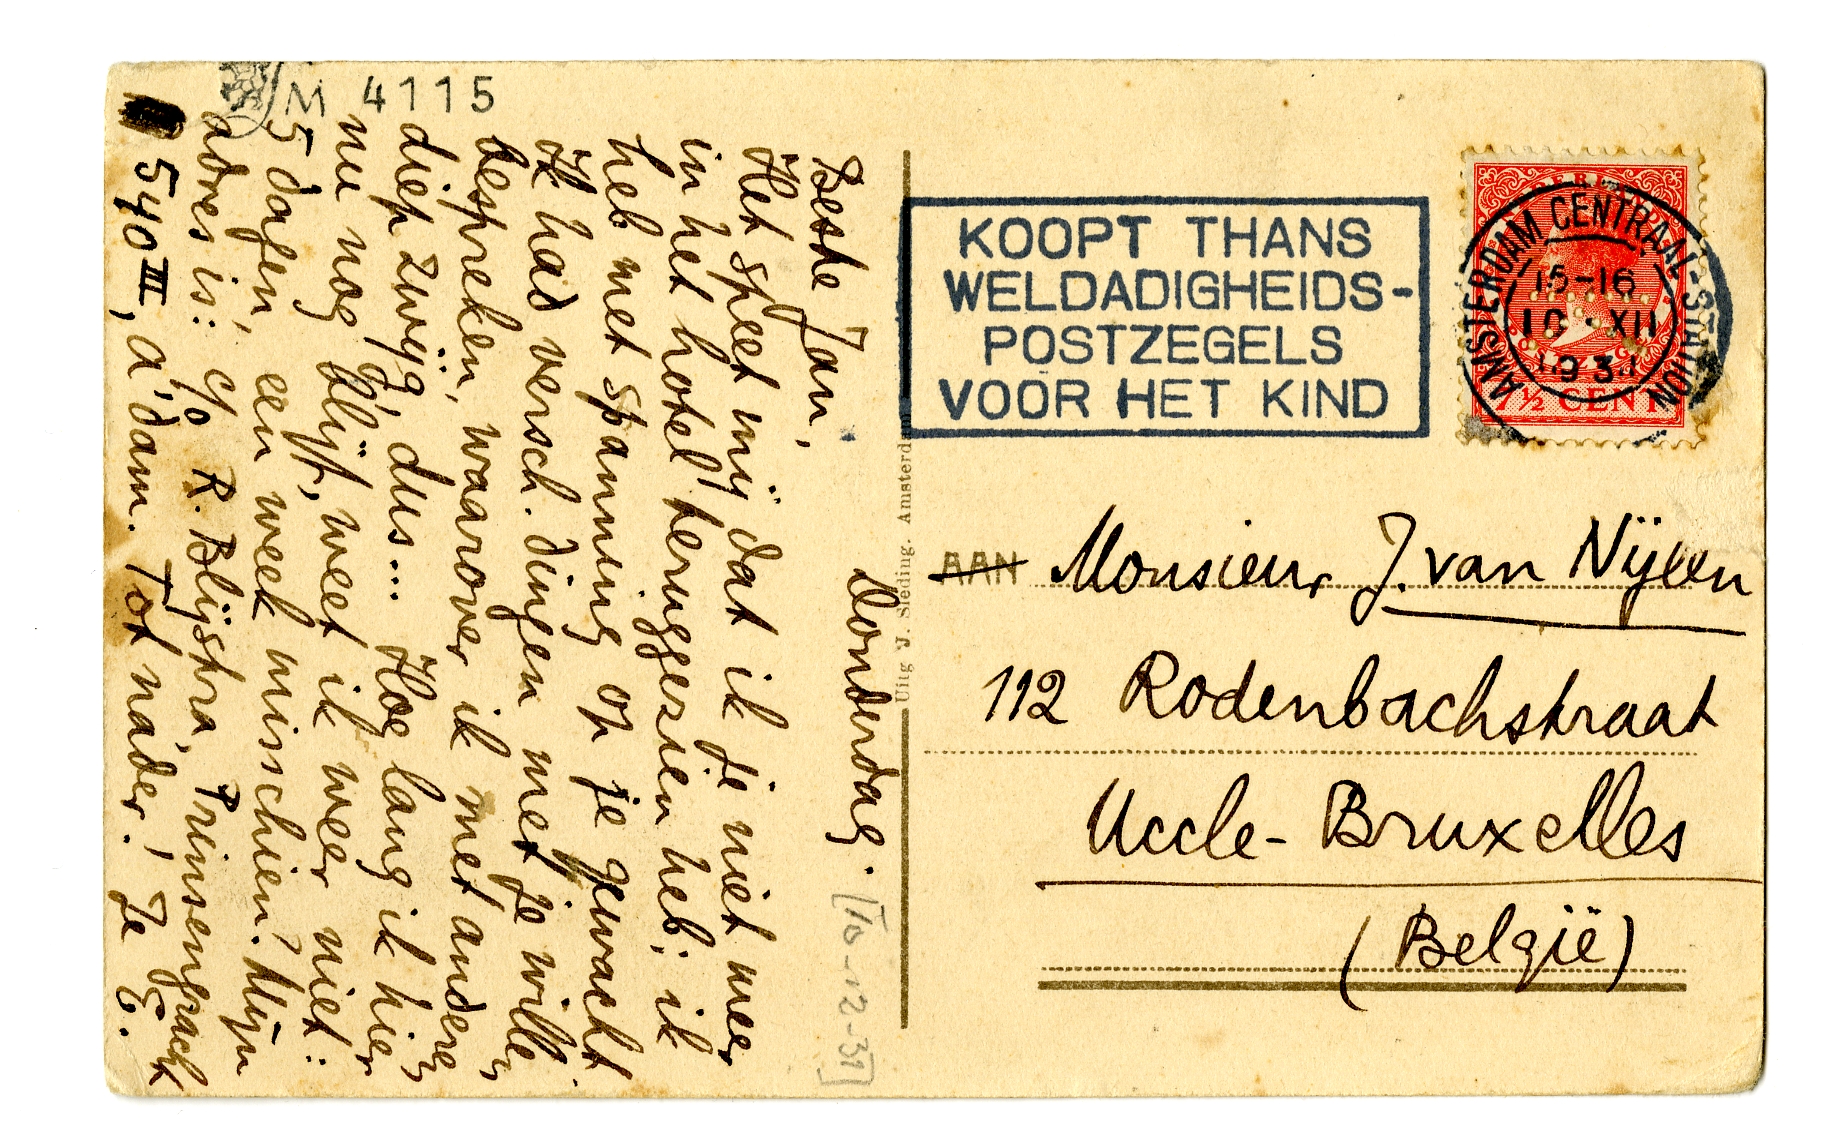 M 4115
Donderdag.
[10-12-31]
Beste Jan,
Het speet mij dat ik je niet meer
in het hotel teruggezien heb; ik
heb met spanning op je gewacht.
Ik had versch. dingen met je willen
bespreken, waarover ik met anderen
diep zwijg, dus... Hoe lang ik hier
nu nog blijf, weet ik weer niet:
5 dagen, een week misschien? Mijn
adres is: c/o R. Blijstra, Prinsengracht
540 III, A'dam. Tot nader! Je E.
Uitg J. Sleding. Amsterdam
KOOPT THANS
WELDADIGHEIDS-
POSTZEGELS
VOOR HET KIND
AMSTERDAM CENTRAAL-STATION
15-16
10 · XII
1931
7½ CENT
AAN Monsieur J. van Nijlen
112 Rodenbachstraat
Uccle-Bruxelles
(België)